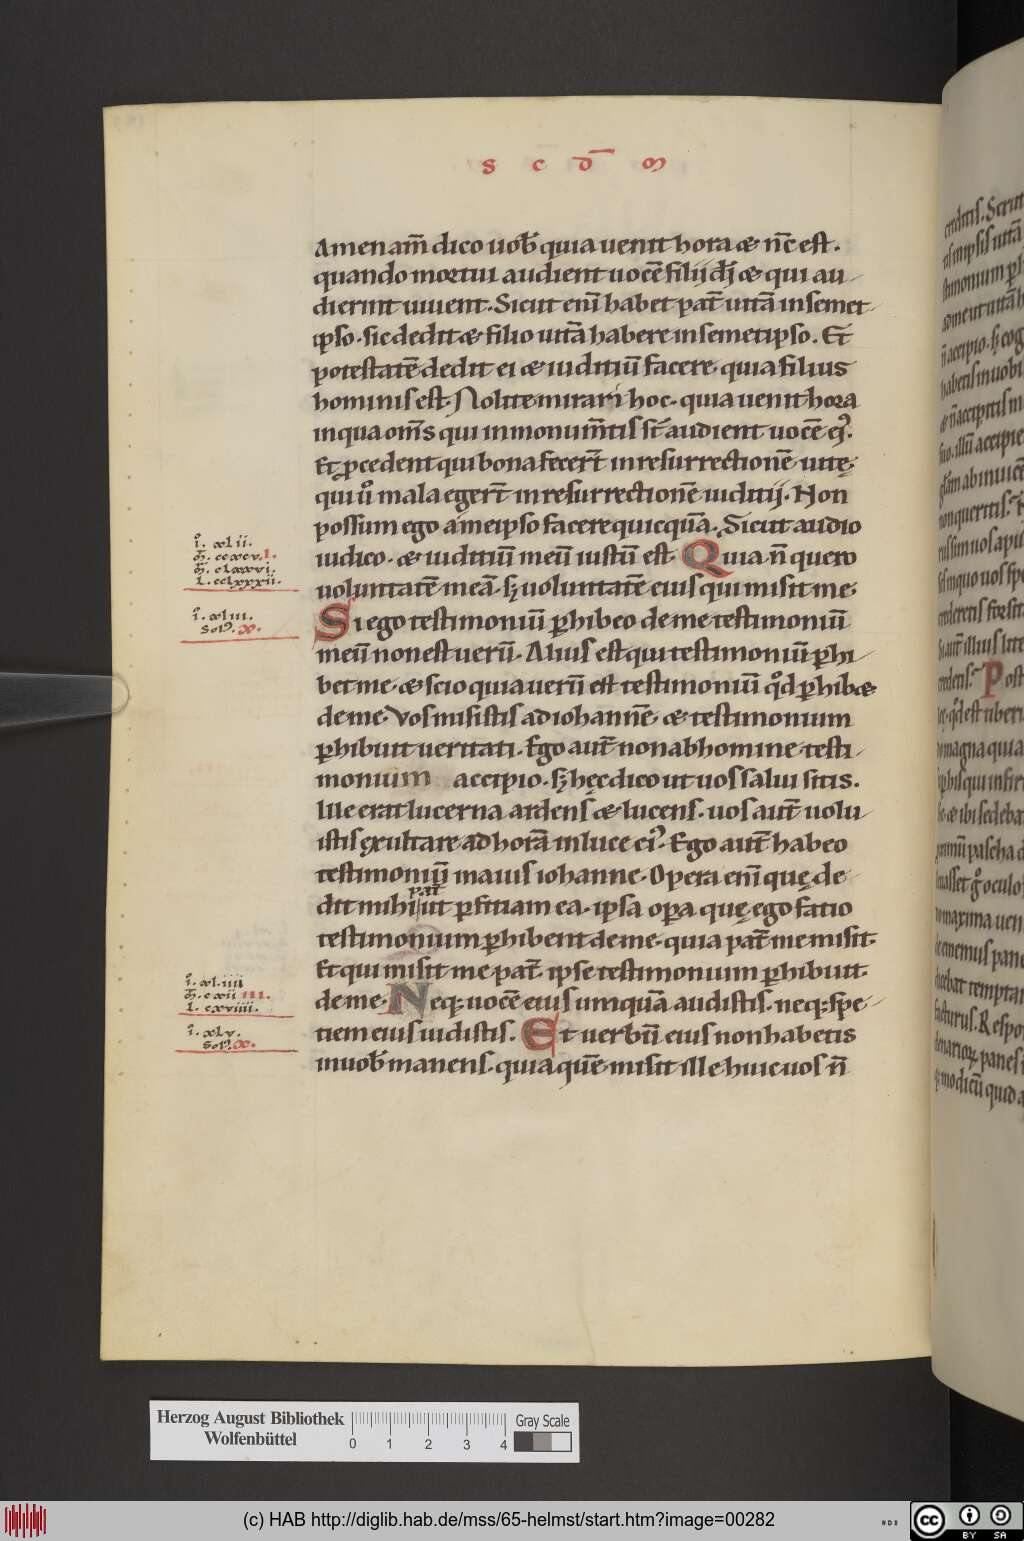 S C D̄ M
Amen am̄ dico uob̄ quia uenit hora & nc̄ est.
quando mortui audient uocē filij dī & qui au
dierint uiuent. Sicut enī habet pat̄ uitā in semet
ipso. sic dedit & filio uitā habere in semetipso. Et
potestatē dedit ei & iuditiū facere. quia filius
hominis est. Nolite mirari hoc. quia uenit hora
in qua om̄s qui in monum̄tis st̄ audient uocē eꝰ.
Et ꝓcedent qui bona fecer̄t in resurrectionē uitę.
qui uͦ mala eger̄t in resurrectionē iuditij. Non
possum ego a me ipso facere quicquā. Sicut audio
iudico. & iuditiū meū iustū est. Quia n̄ quero
uoluntatē meā. sꝫ uoluntatē eius qui misit me.
Si ego testimoniū ꝑhibeo de me testimoniū
meū non est uerū. Alius est qui testimoniū ꝑhi
bet me. & scio quia uerū est testimoniū qd̄ ꝑhib&
de me. Vos misistis ad iohannē. & testimonium
ꝑhibuit ueritati. Ego aut̄ non ab homine testi
monium accipio. sꝫ hęc dico ut uos salui sitis.
Ille erat lucerna ardens & lucens. uos aut̄ uolu
istis exultare ad horā in luce eiꝰ. Ego aut̄ habeo
testimoniū maius iohanne. Opera enī quę de
pat̄
dit mihi ut ꝑfitiam ea. ipsa oꝑa quę ego fatio
testimonium ꝑhibent de me. quia pat̄ me misit.
Et qui misit me pat̄. ipse testimonium ꝑhibuit
de me. Neqꝫ uocē eius umquā audistis. neqꝫ spe
tiem eius uidistis. Et uerbū eius non habetis
in uob̄ manens. quia quē misit ille huic uos n̄
i̊. xlii.
m̄. cccxcv. l.
m̄. clxxvi.
l. cclxxxii.
i̊. xliii.
Sol. x.
i̊. xl.iiii
m̄. cxii III.
l. cxviiii.
i̊. xlv.
Sol. x.
Post
Herzog August Bibliothek
Wolfenbüttel
0 1 2 3 4
Gray Scale
(c) HAB http://diglib.hab.de/mss/65-helmst/start.htm?image=00282
cc BY SA